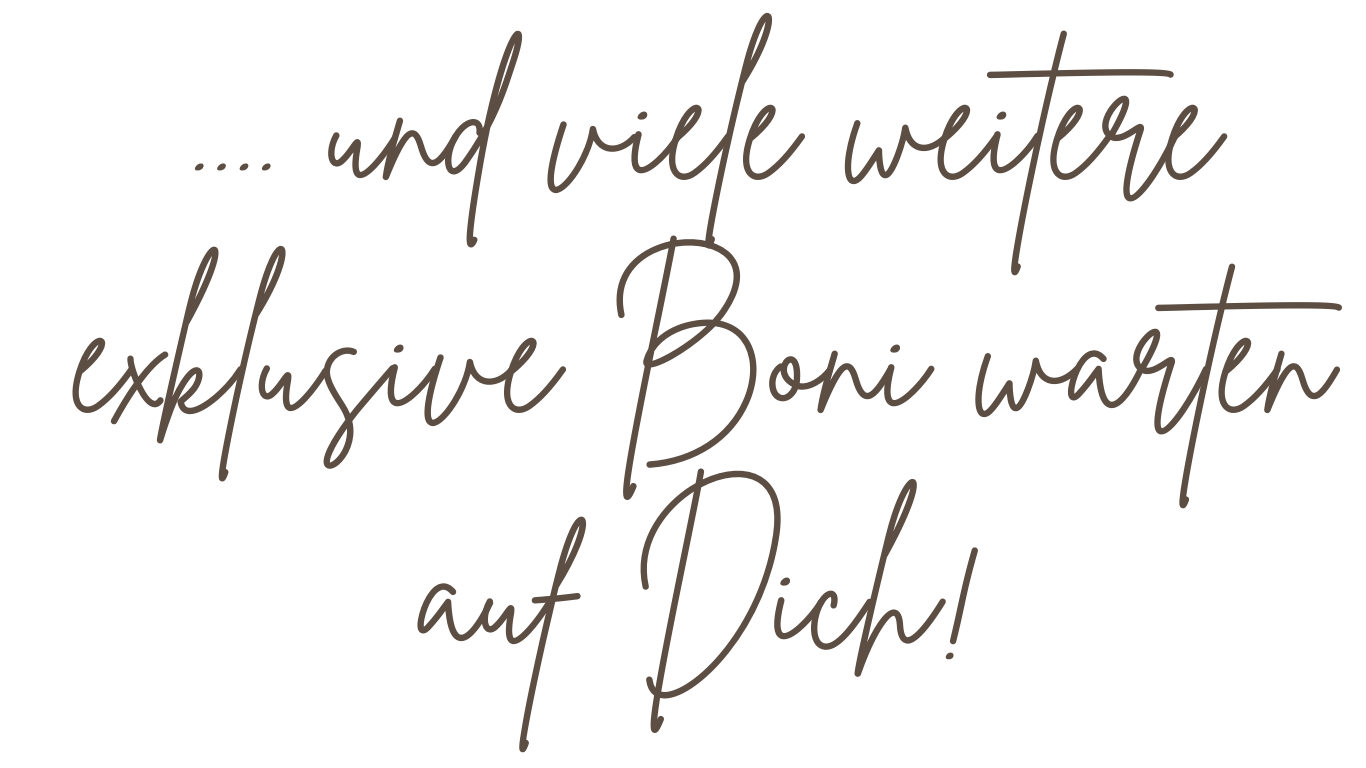 .... und viele weitere
exklusive Boni warten
auf Dich!